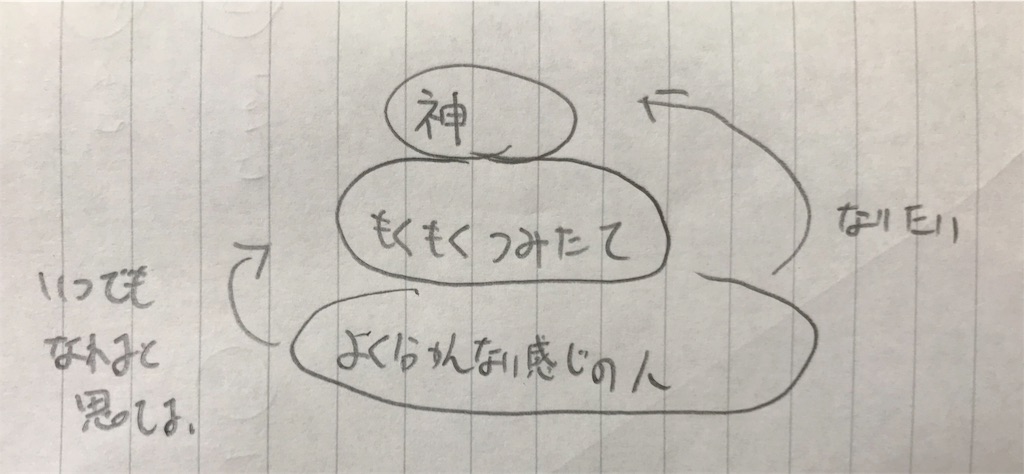 神
もくもくつみたて
なりたい
いつでも
なれると
思ってる、
よくわかんない感じの人